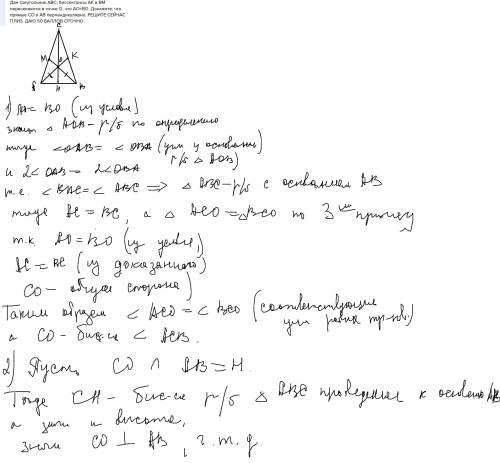 Дан треугольник ABC, биссектрисы AK и BM
пересекаются в точке O, это AO=BO. Докажите, что
прямые CO и AB перпендикулярны. РЕШИТЕ СЕЙЧАС
ПЛИЗ, ДАЮ 50 БАЛЛОВ СРОЧНО
C
M K
O
A H B
1) AO = BO (из условия)
значит △ AOB – р/б по определению
тогда <OAB = <OBA (углы у основания
р/б △ AOB)
и 2<OAB = 2<OBA
т.е. <BAC = <ABC ⟹ △ ABC – р/б с основанием AB
тогда AC = BC, а △ ACO = △ BCO по 3 признаку
т.к. AO = BO (из условия)
AC = BC (из доказанного)
CO – общая сторона)
Таким образом <ACO = <BCO (соответствующие
углы равных тр-ков)
а CO – бис-са < ACB.
2) Пусть CO ∩ AB = H.
Тогда CH – бис-са р/б △ ABC проведенная к основанию AB
а значит и высота,
значит CO ⊥ AB, ч.т.д.